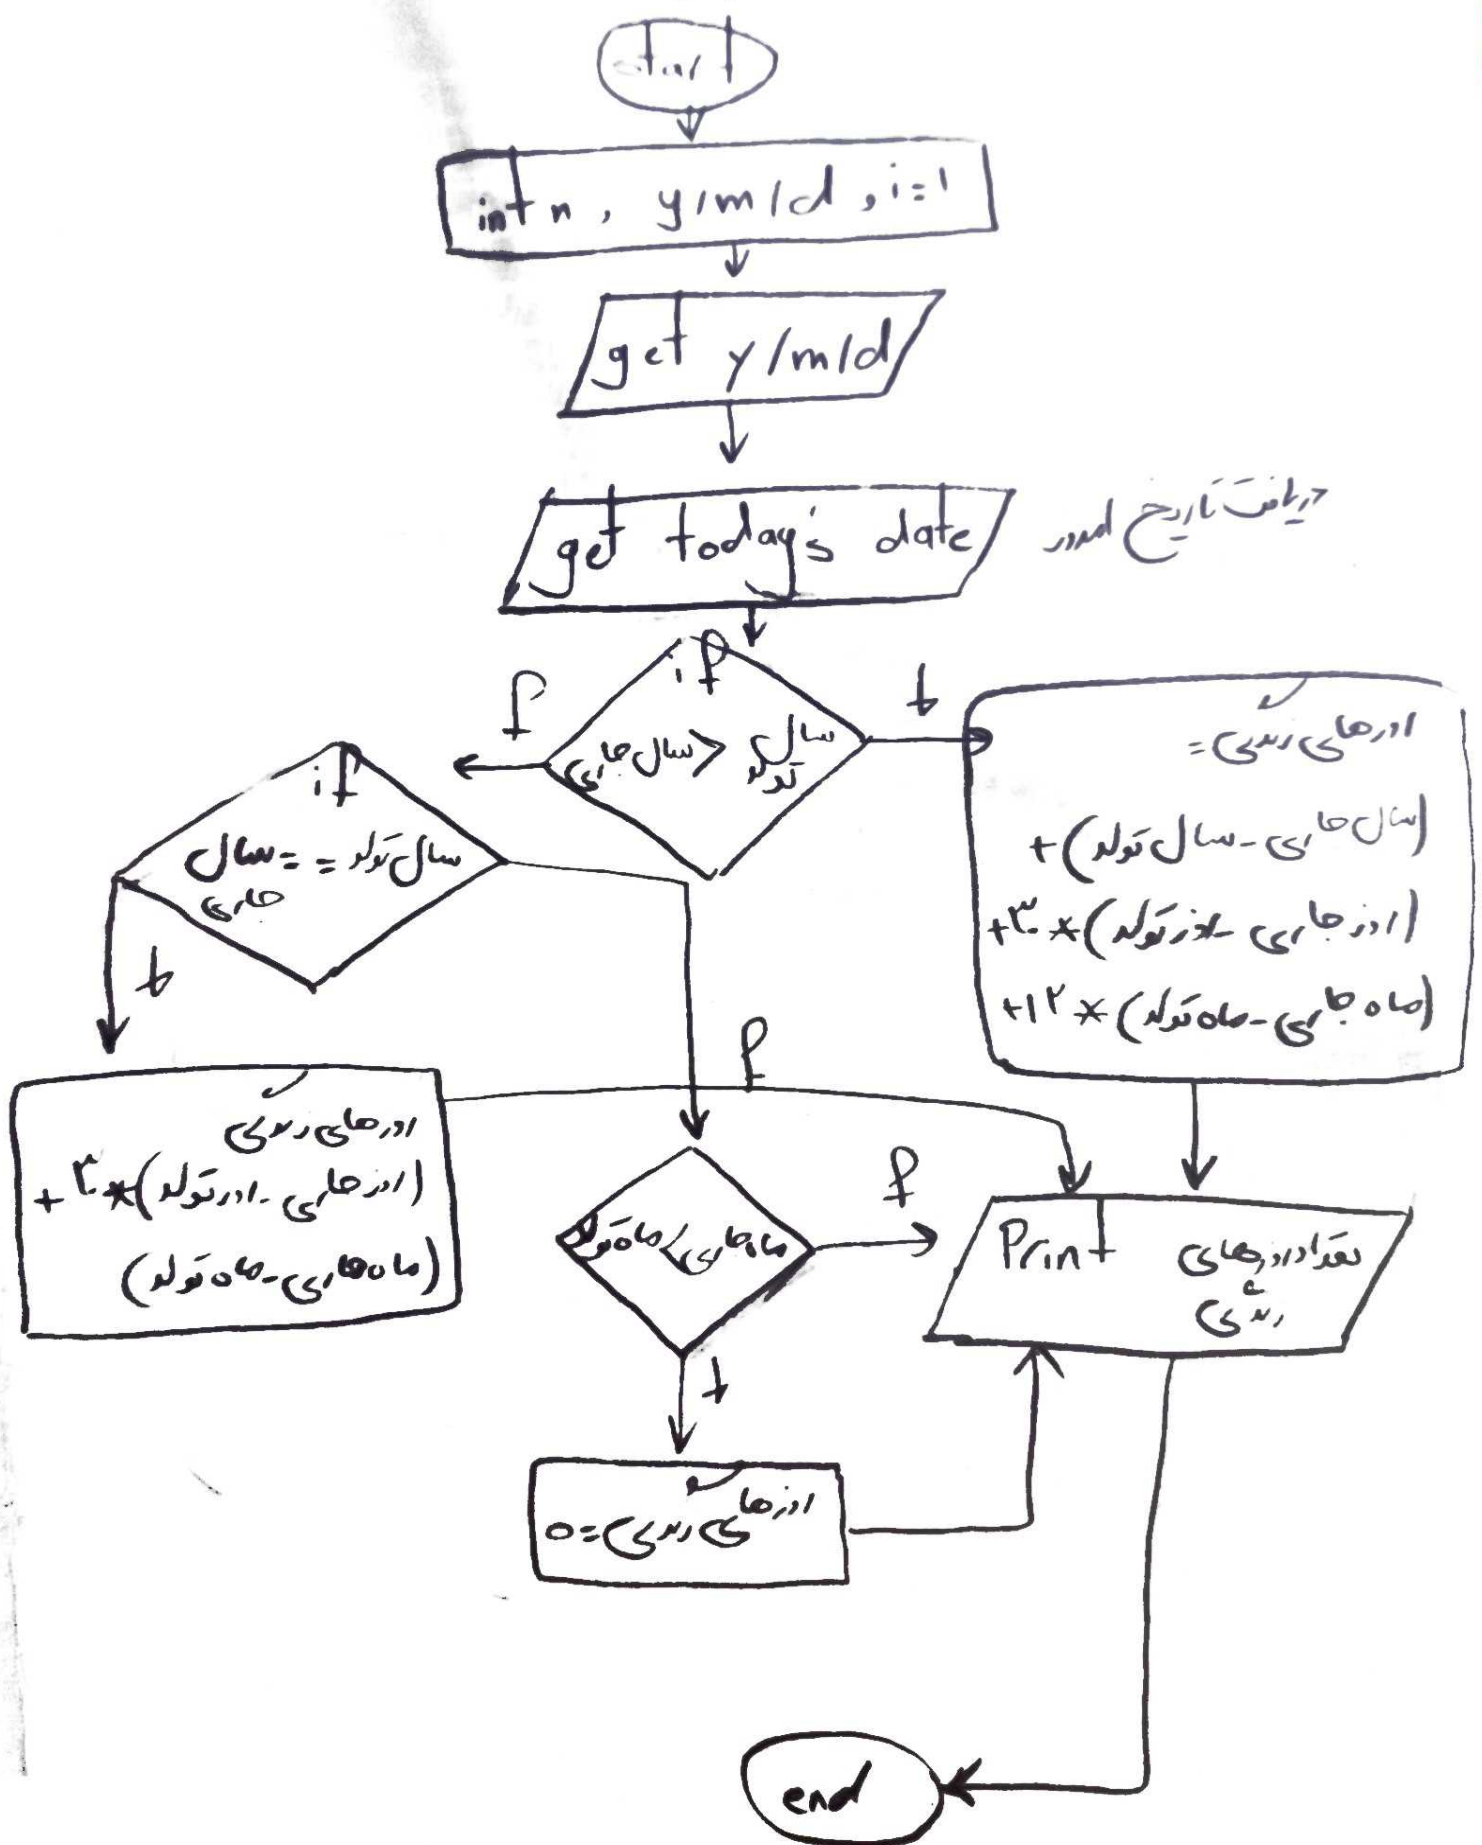 start
int n, y/m/d, i=1
get y/m/d
get today's date
دریافت تاریخ امروز
if
f
t
سال تولد < سال جاری
روزهای زندگی =
(سال جاری - سال تولد) +
(روز جاری - روز تولد) * ۳۰ +
(ماه جاری - ماه تولد) * ۱۲ +
if
سال تولد == سال
جاری
t
f
روزهای زندگی
(روز جاری - روز تولد) * ۳۰ +
(ماه جاری - ماه تولد)
ماه جاری < ماه تولد
f
t
Print تعداد روزهای
زندگی
روزهای زندگی = 0
end